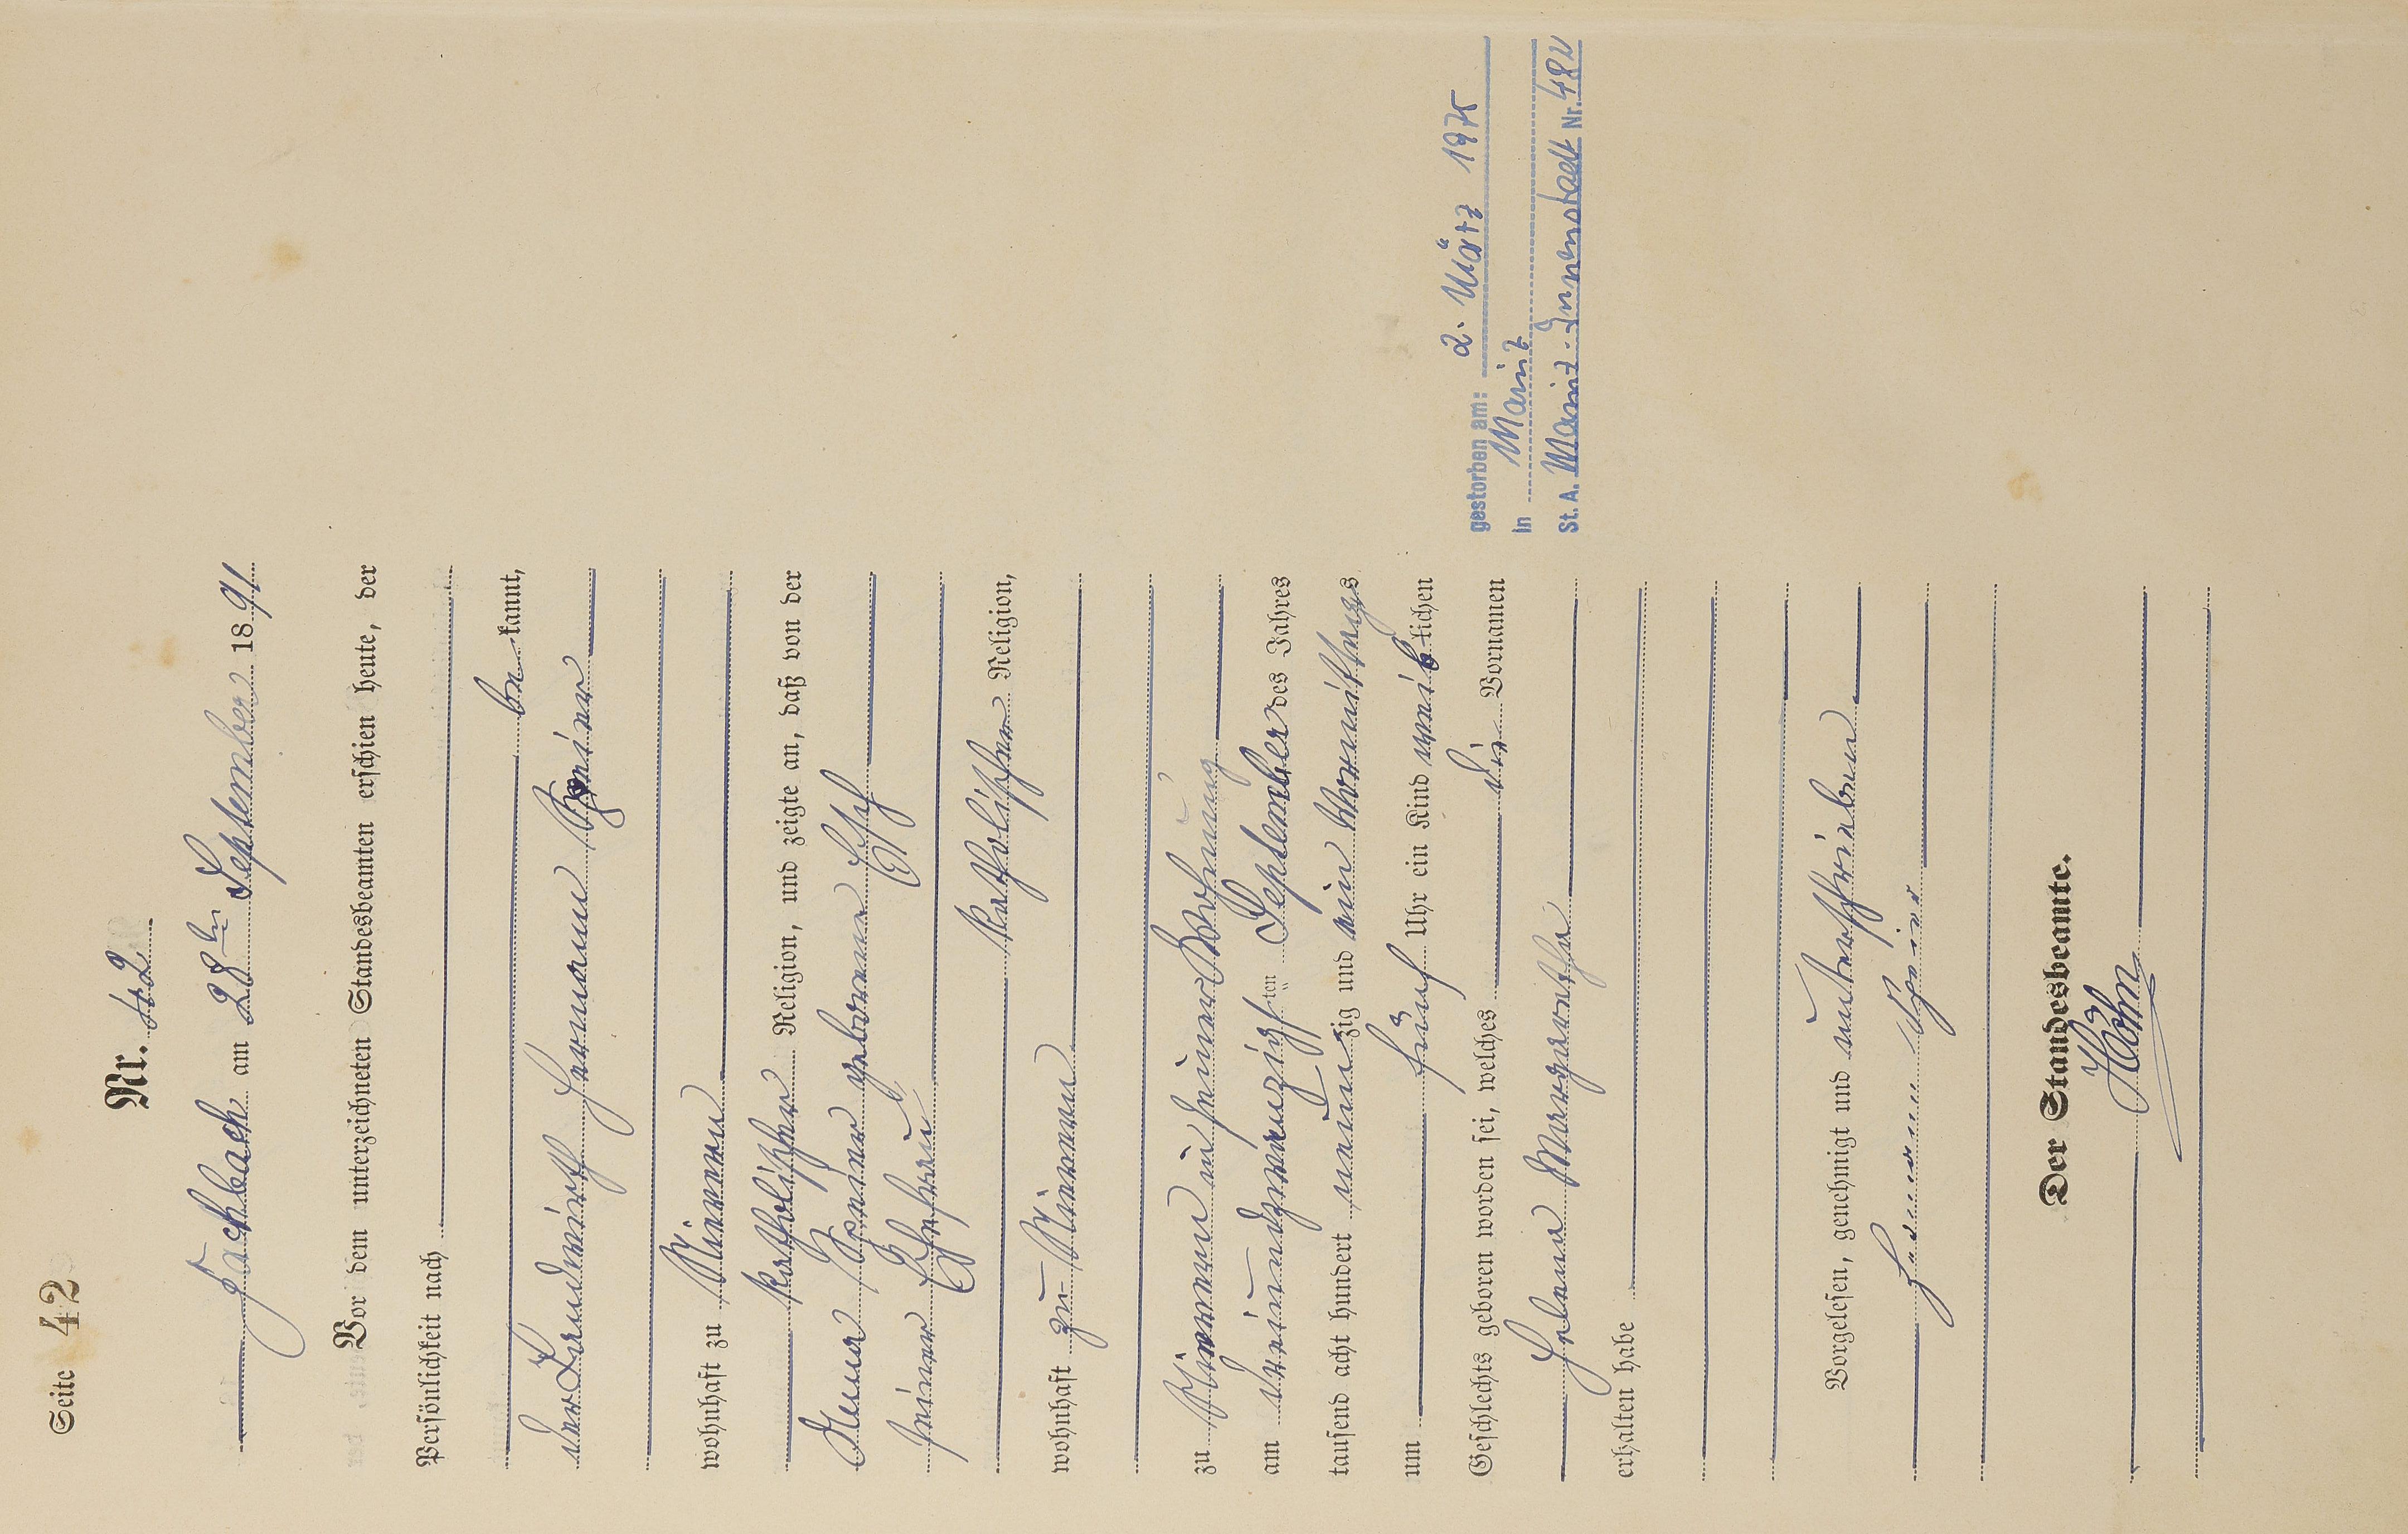 Seite 42
Nr. 42.
Fachbach am 28ten September 1891
Vor dem unterzeichneten Standesbeamten erschien heute, der
Persönlichkeit nach
be kannt,
der Landwirth Hermann
wohnhaft zu Nievern
katholischer Religion, und zeigte an, daß von der
Anna geborene Esch
seiner Ehefrau
katholischer Religion,
wohnhaft zu Nievern
zu Nievern in seiner Wohnung
am dreiundzwanzigsten September des Jahres
tausend acht hundert neunzig und ein Vormittags
um fünf Uhr ein Kind weiblichen
Geschlechts geboren worden sei, welches die Vornamen
Helena Margaretha
erhalten habe
Vorgelesen, genehmigt und unterschrieben
Hermann
Der Standesbeamte.
Höhn
gestorben am: 2. März 1975
in Mainz
St. A. Mainz-Innenstadt Nr. 482